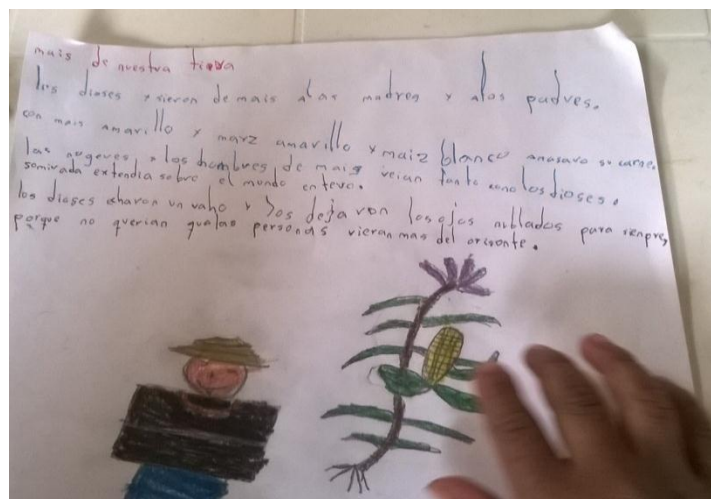 mais de nuestra tierra
los dioses x sieron de mais alas madres y alos padres.
con mais amarillo x marz amarillo x maiz blanco amasaro su carne.
las mugeres y los hombres de mais veian tanto como los dioses.
somirada extendia sobre el mundo entero.
los dioses echaron un vaho y los dejaron los ojos nublados para senpre,
porque no querian qualas personas vieran mas del orisonte.